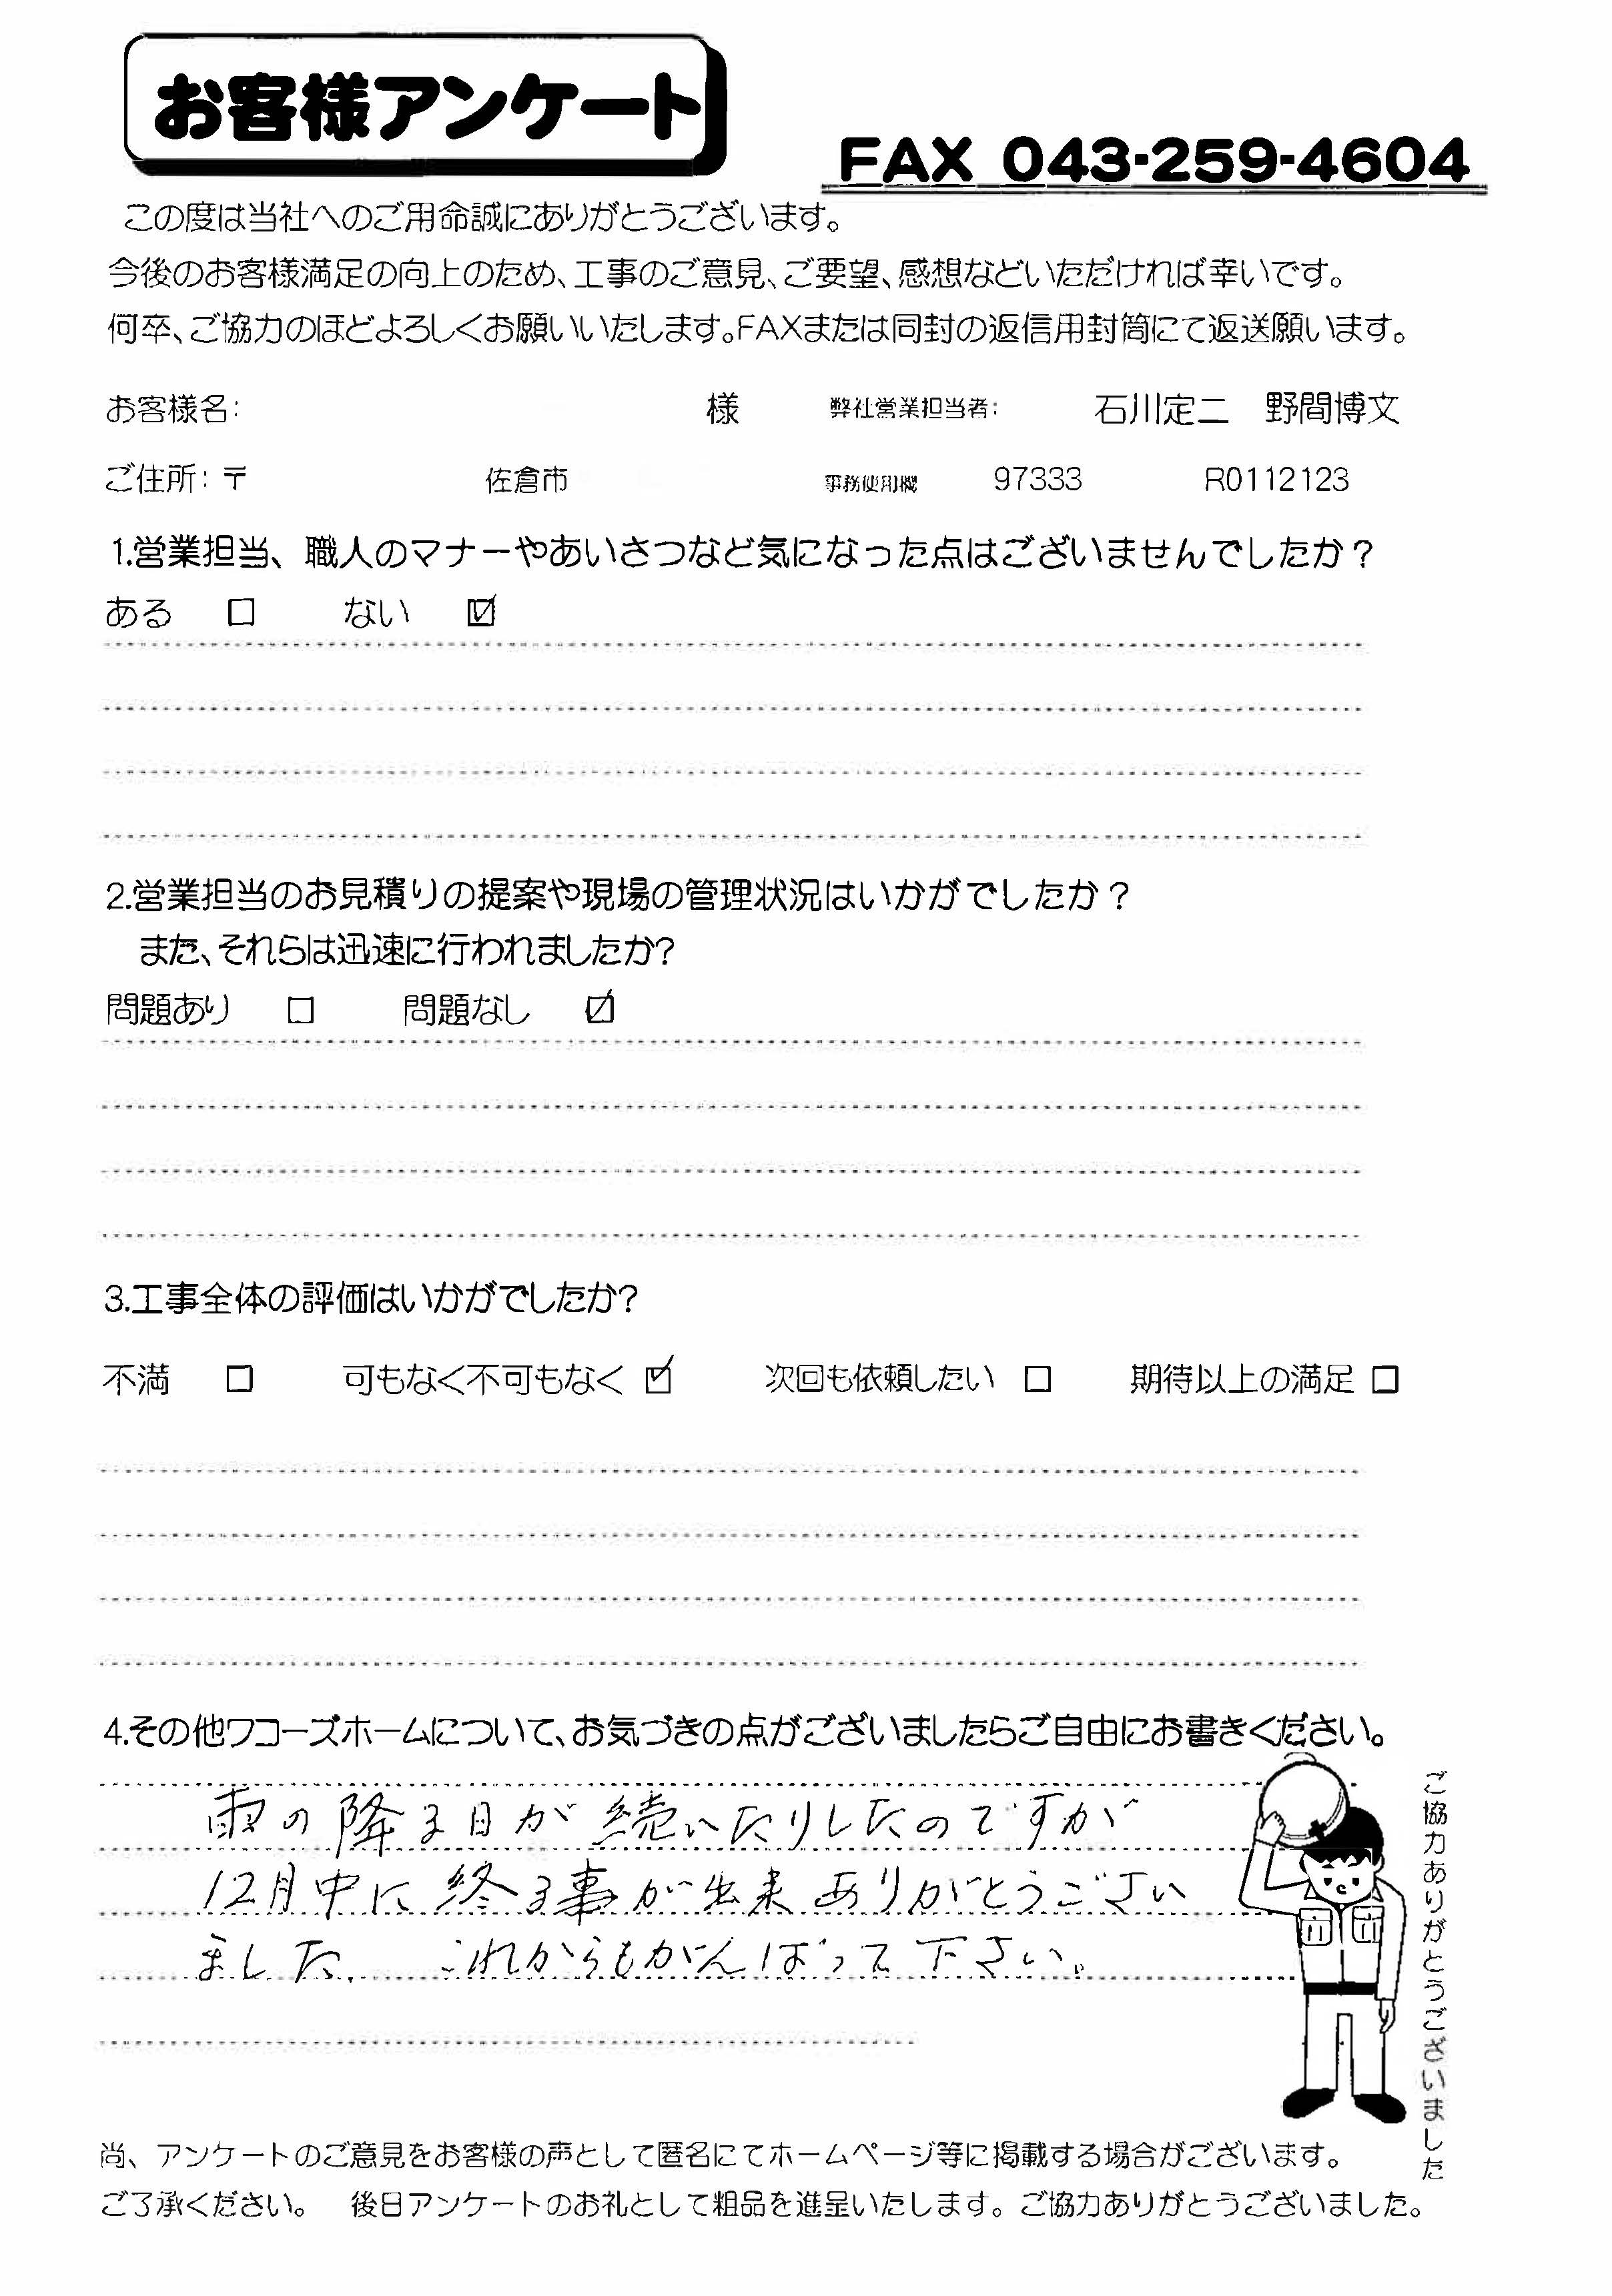 お客様アンケート
FAX 043-259-4604
この度は当社へのご用命誠にありがとうございます。
今後のお客様満足の向上のため、工事のご意見、ご要望、感想などいただければ幸いです。
何卒、ご協力のほどよろしくお願いいたします。FAXまたは同封の返信用封筒にて返送願います。
お客様名: 様 弊社営業担当者: 石川定二 野間博文
ご住所: 〒 佐倉市 事務使用欄 97333 R0112123
1.営業担当、職人のマナーやあいさつなど気になった点はございませんでしたか？
ある □ ない ☑
2.営業担当のお見積りの提案や現場の管理状況はいかがでしたか？
また、それらは迅速に行われましたか?
問題あり □ 問題なし ☑
3.工事全体の評価はいかがでしたか?
不満 □ 可もなく不可もなく ☑ 次回も依頼したい □ 期待以上の満足 □
4.その他ワコーズホームについて、お気づきの点がございましたらご自由にお書きください。
雨の降る日が続いたりしたのですが
12月中に終る事が出来ありがとうござい
ました。これからもがんばって下さい。
ご協力ありがとうございました
尚、アンケートのご意見をお客様の声として匿名にてホームページ等に掲載する場合がございます。
ご了承ください。 後日アンケートのお礼として粗品を進呈いたします。ご協力ありがとうございました。